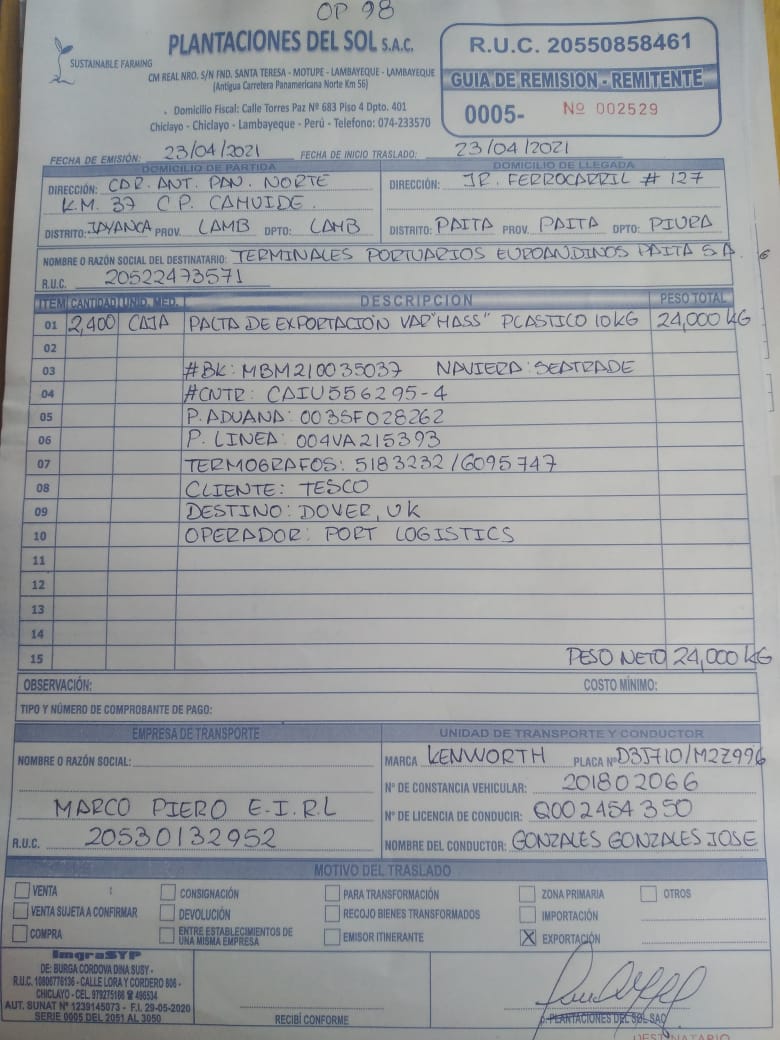 OP 98
SUSTAINABLE FARMING
PLANTACIONES DEL SOL S.A.C.
CM REAL NRO. S/N FND. SANTA TERESA - MOTUPE - LAMBAYEQUE - LAMBAYEQUE
(Antigua Carretera Panamericana Norte Km 56)
Domicilio Fiscal: Calle Torres Paz Nº 683 Piso 4 Dpto. 401
Chiclayo - Chiclayo - Lambayeque - Perú - Telefono: 074-233570
R.U.C. 20550858461
GUIA DE REMISION - REMITENTE
0005- Nº 002529
FECHA DE EMISIÓN: 23/04/2021 FECHA DE INICIO TRASLADO: 23/04/2021
DOMICILIO DE PARTIDA
DIRECCIÓN: CAR. ANT. PAN. NORTE
K.M. 37 C.P. CAHUIDE.
DISTRITO: JAYANCA PROV. LAMB DPTO: LAMB
DOMICILIO DE LLEGADA
DIRECCIÓN: JR. FERROCARRIL # 127
DISTRITO: PAITA PROV. PAITA DPTO: PIURA
NOMBRE O RAZÓN SOCIAL DEL DESTINATARIO: TERMINALES PORTUARIOS EUROANDINOS PAITA S.A.
R.U.C. 20522473571
ITEM CANTIDAD UNID. MED. DESCRIPCION PESO TOTAL
01 2,400 CAJA PALTA DE EXPORTACIÓN VAR "HASS" PLASTICO 10KG 24,000 KG
02
03 #BK: MBM210035037 NAVIERA: SEATRADE
04 #CNTR: CAIU556295-4
05 P. ADUANA: 003SF028262
06 P. LINEA: 004VA215393
07 TERMOGRAFOS: 5183232/6095747
08 CLIENTE: TESCO
09 DESTINO: DOVER, UK
10 OPERADOR: PORT LOGISTICS
11
12
13
14
15 PESO NETO 24,000 KG
OBSERVACIÓN: COSTO MÍNIMO:
TIPO Y NÚMERO DE COMPROBANTE DE PAGO:
EMPRESA DE TRANSPORTE
NOMBRE O RAZÓN SOCIAL:
MARCO PIERO E.I.R.L
R.U.C. 20530132952
UNIDAD DE TRANSPORTE Y CONDUCTOR
MARCA KENWORTH PLACA Nº D3J710/M2Z996
Nº DE CONSTANCIA VEHICULAR: 201802066
Nº DE LICENCIA DE CONDUCIR: Q002454350
NOMBRE DEL CONDUCTOR: GONZALES GONZALES JOSE
MOTIVO DEL TRASLADO
VENTA CONSIGNACIÓN PARA TRANSFORMACIÓN ZONA PRIMARIA OTROS
VENTA SUJETA A CONFIRMAR DEVOLUCIÓN RECOJO BIENES TRANSFORMADOS IMPORTACIÓN
COMPRA ENTRE ESTABLECIMIENTOS DE UNA MISMA EMPRESA EMISOR ITINERANTE X EXPORTACIÓN
ImgraSYP
DE: BURGA CORDOVA DINA SUSY -
R.U.C. 10806776136 - CALLE LORA Y CORDERO 806 -
CHICLAYO - CEL. 979275166 ☎ 496534
AUT. SUNAT Nº 1239145073 - F.I. 29-05-2020
SERIE 0005 DEL 2051 AL 3050
RECIBÍ CONFORME
p. PLANTACIONES DEL SOL SAC
DESTINATARIO